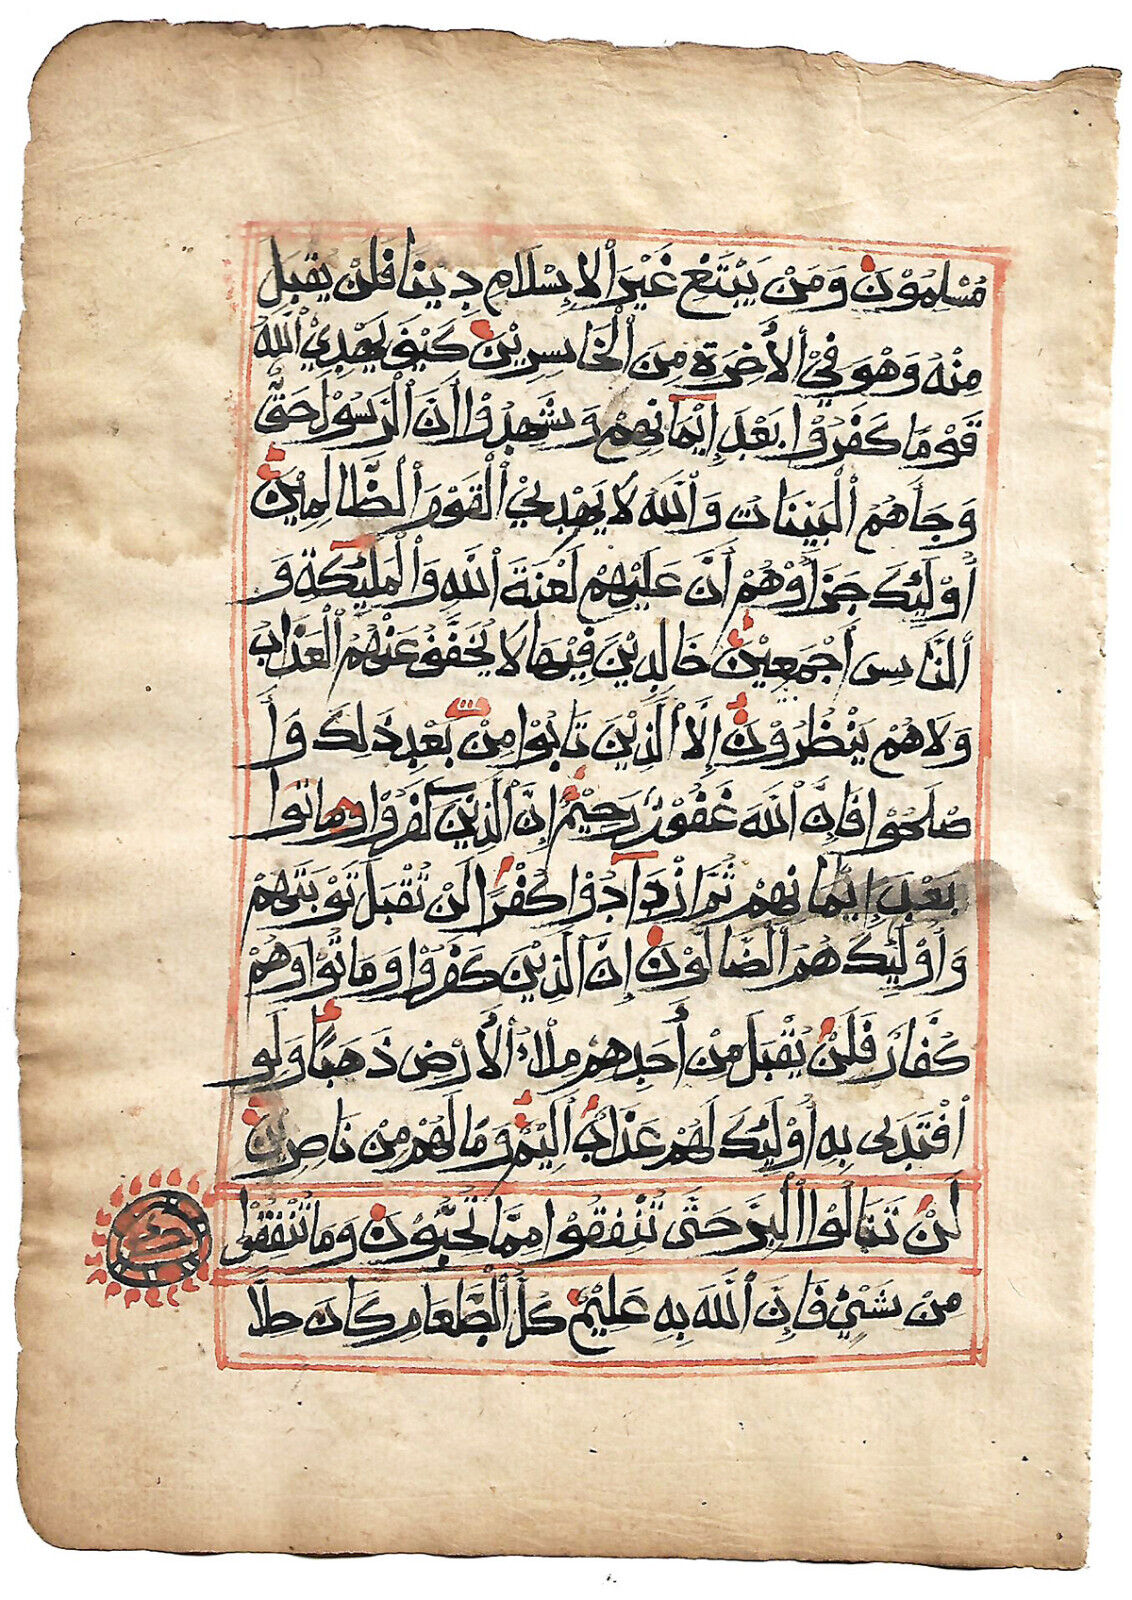 مُسْلِمُوْنَ وَمَنْ يَبْتَغِ غَيْرَ ٱلْاِسْلَامِ دِينًا فَلَنْ يُقْبَلَ
مِنْهُ وَهُوَ فِيْ ٱلْأُخِرَةِ مِنَ ٱلْخَاسِرِيْنَ كَيْفَ يَهْدِيْ ٱللَّهُ
قَوْمًا كَفَرُوْا بَعْدَ إِيْمَانِهِمْ وَشَهِدُوْا أَنَّ ٱلرَّسُوْلَ حَقٌّ
وَجَأَهُمُ ٱلْبَيِّنَاتُ وَٱللَّهُ لَا يَهْدِيْ ٱلْقَوْمَ ٱلظَّالِمِيْنَ
أُوْلَئِكَ جَزَأُوْهُمْ أَنَّ عَلَيْهِمْ لَعْنَةَ ٱللَّهِ وَٱلْمَلَئِكَةِ وَ
ٱلنَّاسِ أَجْمَعِيْنَ خَالِدِيْنَ فِيْهَا لَا يُخَفَّفُ عَنْهُمُ ٱلْعَذَابُ
وَلَا هُمْ يُنْظَرُوْنَ إِلَّا ٱلَّذِيْنَ تَابُوْا مِنْ بَعْدِ ذَلِكَ وَأَ
صْلَحُوْا فَإِنَّ ٱللَّهَ غَفُوْرٌ رَحِيْمٌ إِنَّ ٱلَّذِيْنَ كَفَرُوْا وَمَاتُوْا
بَعْدَ إِيْمَانِهِمْ ثُمَّ ٱزْدَادُوْا كُفْرًا لَنْ تُقْبَلَ تَوْبَتُهُمْ
وَأُوْلَئِكَ هُمُ ٱلضَّالُّوْنَ إِنَّ ٱلَّذِيْنَ كَفَرُوْا وَمَاتُوْا وَهُمْ
كُفَّارٌ فَلَنْ يُقْبَلَ مِنْ أَحَدِهِمْ مِلْءُ ٱلْأَرْضِ ذَهَبًا وَلَوِ
ٱفْتَدَى بِهِ أُوْلَئِكَ لَهُمْ عَذَابٌ أَلِيْمٌ وَمَا لَهُمْ مِنْ نَاصِرِيْنَ
لَنْ تَنَالُوْا ٱلْبِرَّ حَتَّى تُنْفِقُوْا مِمَّا تُحِبُّوْنَ وَمَا تُنْفِقُوْا
مِنْ شَيْئٍ فَإِنَّ ٱللَّهَ بِهِ عَلِيْمٌ كُلُّ ٱلطَّعَامِ كَانَ حِلًّا